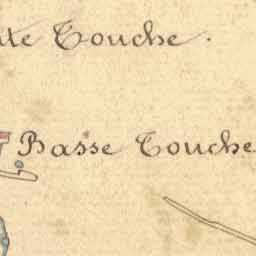 te Touche.
Basse Touche